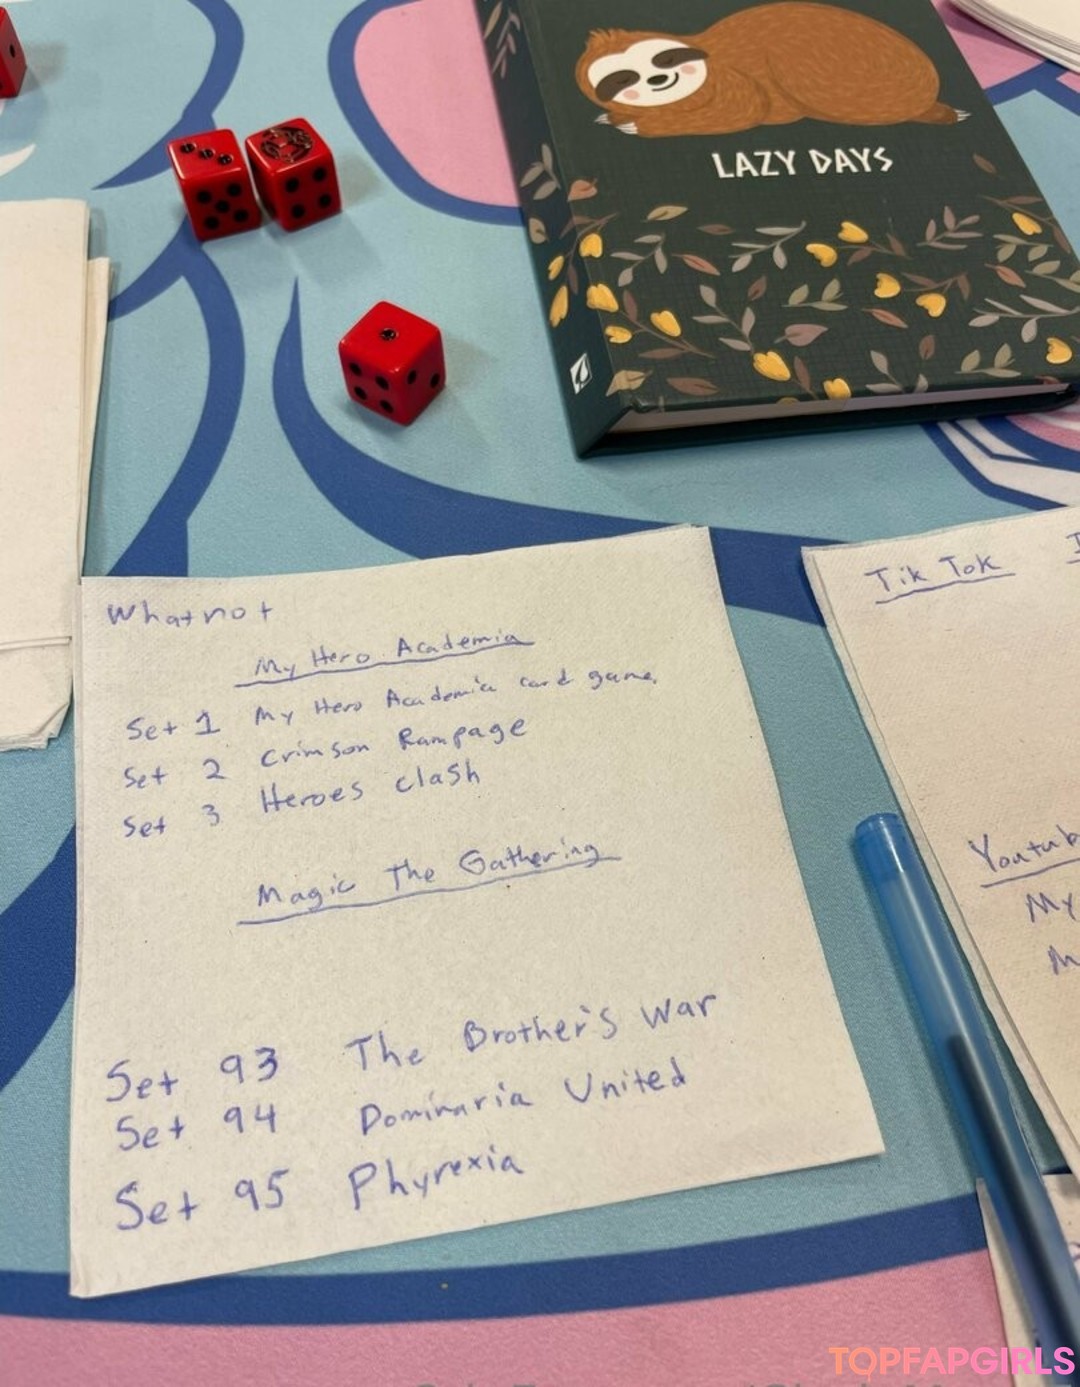 LAZY DAYS
Whatnot
My Hero Academia
Set 1 My Hero Academia card game.
Set 2 Crimson Rampage
Set 3 Heroes clash
Magic The Gathering
Set 93 The Brother's War
Set 94 Dominaria United
Set 95 Phyrexia
Tik Tok
Youtub
My
M
TOPFAPGIRLS